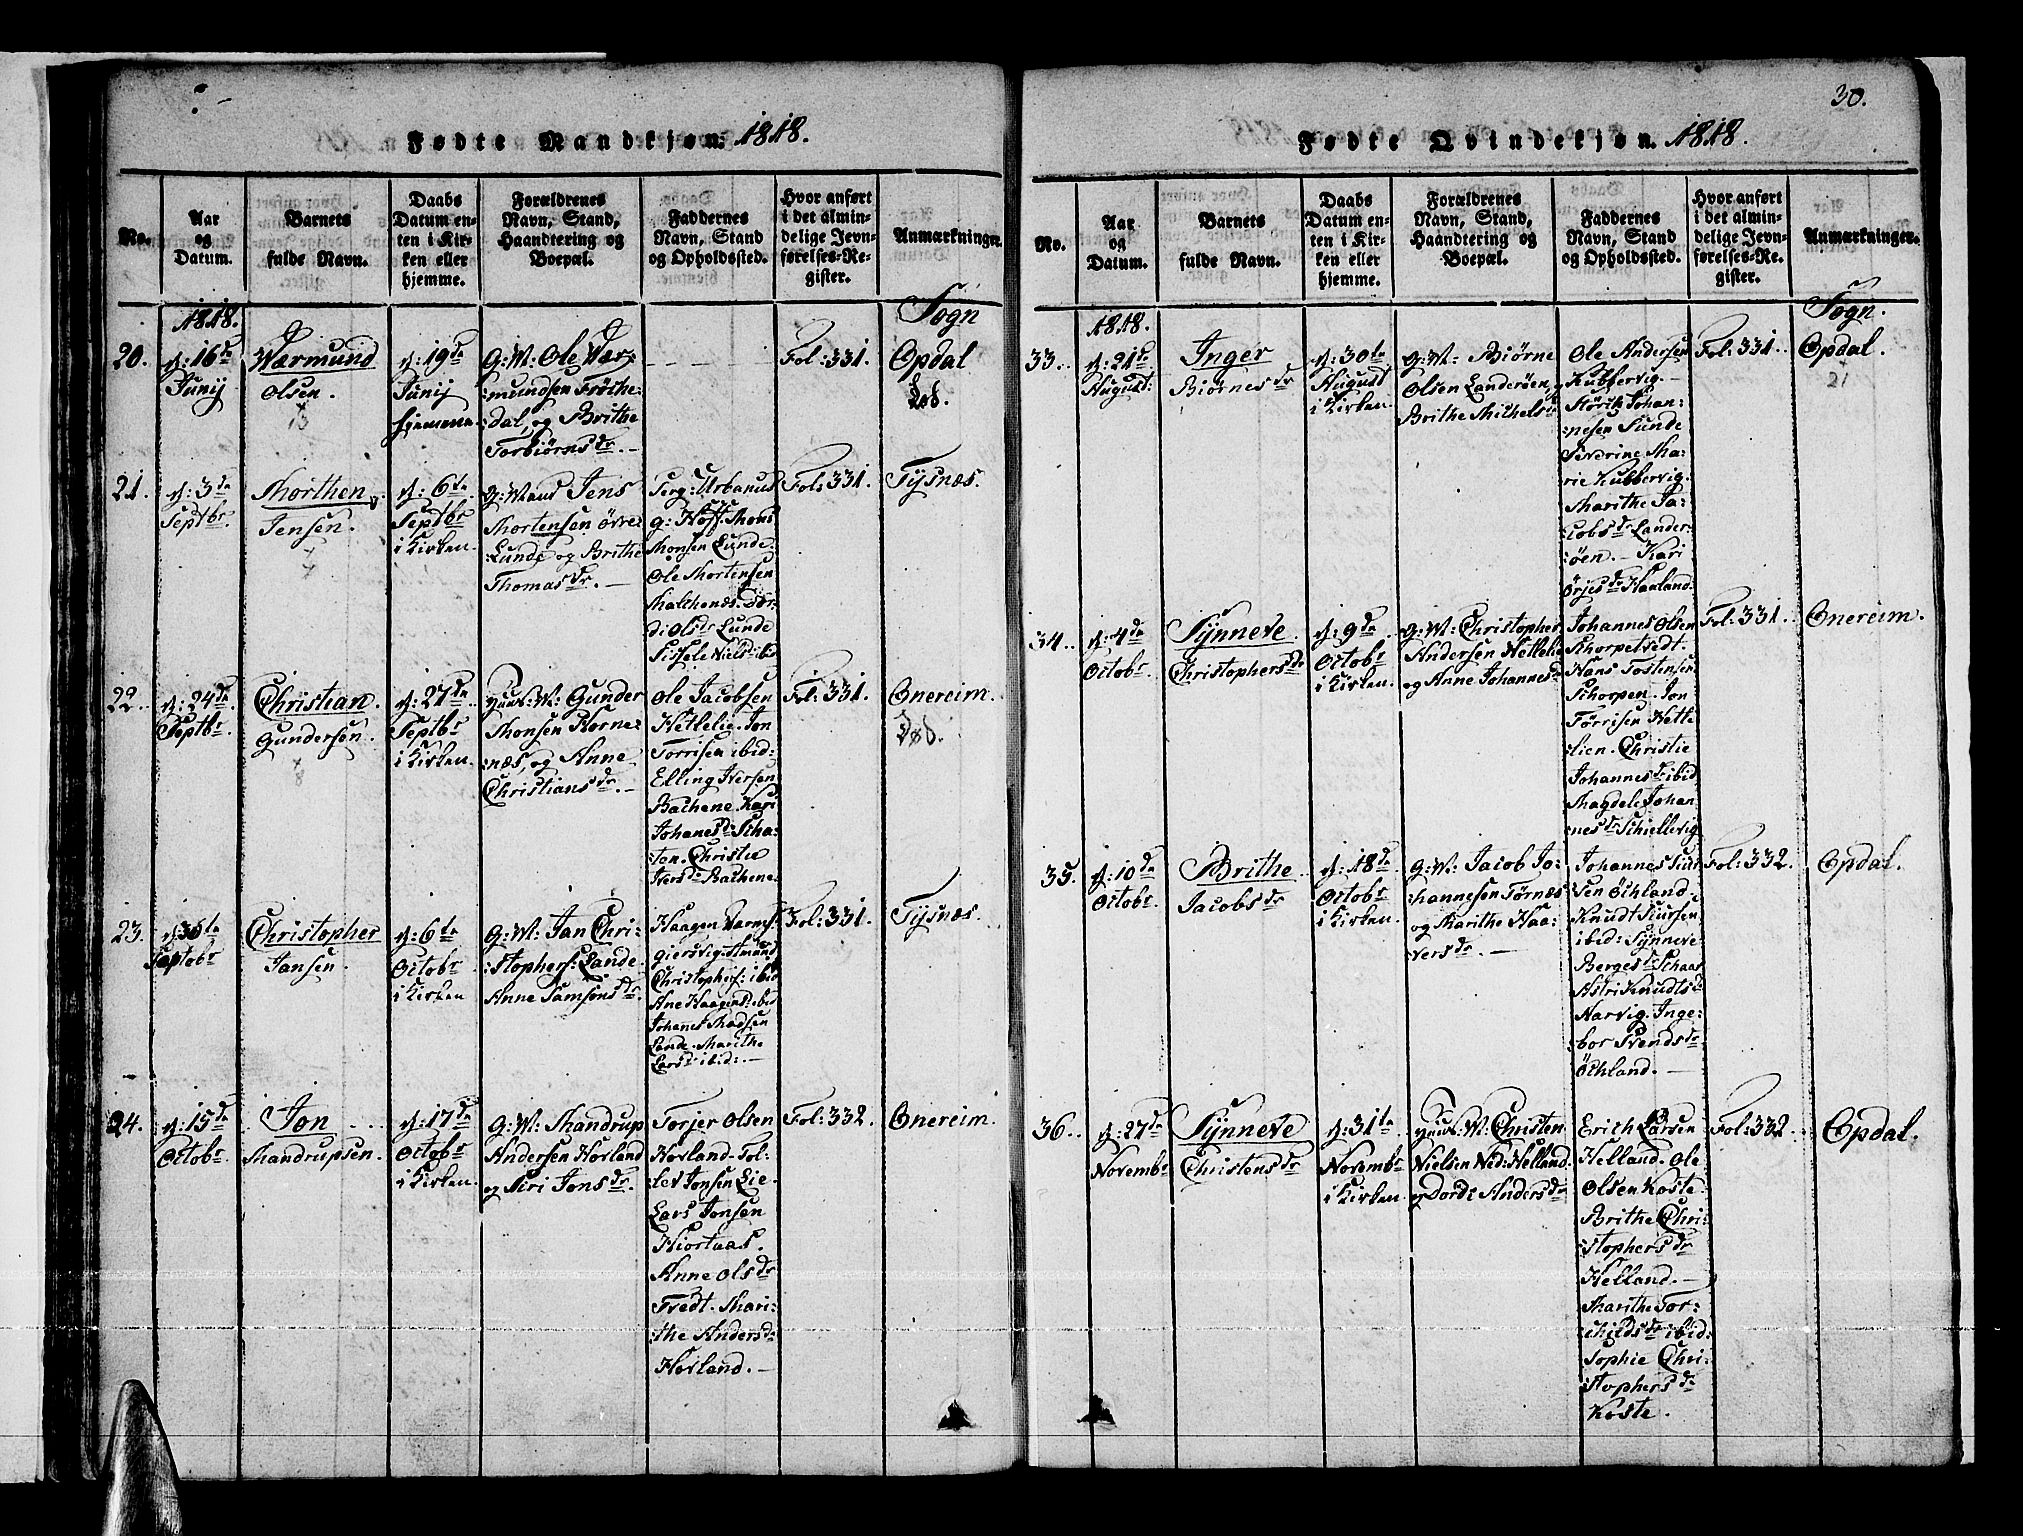 Fødte Mandkjøn. 1818.
No.
Aar
og
Datum.
Barnets
fulde Navn.
Daabs
Datum en-
ten i Kir-
ken eller
hjemme.
Forældrenes
Navn, Stand,
Haandtering og
Boepæl.
Faddernes
Navn, Stand
og Opholdssted.
Hvor anført
i det almin-
delige Jevn-
førelses-Re-
gister.
Anmærkninger.
1818.
Sogn
20.
d: 16de
Junij
Wærmund
Olsen.
d: 19de
Junij
hjemme.
G: M: Ole Vær-
mundsen Frøthe-
:dal, og Brithe
Torbiørnsdr. —
Fol: 331.
Opdal
Død.
21.
d: 3de
Septbr.
Morthen
Jensen.
d: 6te
Septbr
i Kirken.
G: Mand Jens
Mortensen øvre
Lunde og Brithe
Thomasdr. —
Serg: Urbanus
g: Hoff. Mons
Monsen Lunde.
Ole Mortensen
Malchenæs. Gor-
di Olsdr Lunde
Sishele Nielsd ibid
Fol: 331.
Tysnæs.
22.
d: 24de
Septbr
Christian
Gundersen.
d: 27de
Septbr
i Kirken.
Huus-M: Gunder
Monsen Horne-
:næs, og Anne
Christiansdr. —
Ole Jacobsen
Hetlelie. Jon
Torrisen ibid:
Elling Iversen
Bachene. Kari
Johanesd: Scha-
:ton. Christie
Iversdr Bachene.
Fol: 331.
Onereim.
Død.
23.
Septobr
Christopher
Jansen.
d: 6te
Octobr
i Kirken
G: M: Jan Chri-
:stophers: Lande
Anne Samsonsdr.
Haagen Varms
giersvig. Amund
Christophers: ibid
Ane Haagensd: ibid
Johannes Madsen
Lande. Marithe
Larsdr ibid: —
Fol: 331.
Tysnæs.
24.
d: 15de
Octobr
Jon
Mandrupsen.
d: 17de
Octobr
i Kirken.
G: M: Mandrup
Andersen Hovland
og Siri Jonsdr.
Torjer Olsen
Hovland. Tol-
lev Jonsen Lie.
Lars Jonsen
Hiortnæs.
Anne Olsdr
Tvedt. Mari-
:the Andersdr
Hovland. —
Fol: 332.
Onereim.
30.
Fødte Qvindekjøn. 1818.
No.
Aar
og
Datum.
Barnets
fulde Navn.
Daabs
Datum en-
ten i Kir-
ken eller
hjemme.
Forældrenes
Navn, Stand,
Haandtering og
Boepæl.
Faddernes
Navn, Stand
og Opholdssted.
Hvor anført
i det almin-
delige Jevn-
førelses-Re-
gister.
Anmærkninger.
1818.
Sogn.
33.
d: 21de
August:
Inger
Biørnesdr
d: 30te
August
i Kirken.
G: M: Biørne
Olsen Landerøen,
Brithe Michelsdr
Ole Andersen
Kubbervig. —
Størik Johan-
:nesen Sunde
Severine Ma-
rie Kubbervig.
Marithe Ja-
:cobsdr Lander-
:øen. — Kari
Ørjesdr Haaland.
Fol: 331.
Opdal.
21
34.
d: 4de
Octobr
Synneve
Christophersdr
d: 9de
Octobr
i Kirken.
G: M: Christopher
Andersen Hetlelie
og Anne Johannesdr
Johannes Olsen
Schorpetvedt.
Hans Tostensen
Schorpen. Jon
Tørrisen Hetle
lien. Christie
Johannesdr ibid
Magdele Johan
nesdr Schiellevig
Fol: 331.
Onereim.
35.
d: 10de
Octobr.
Brithe
Jacobsdr
d: 18de
Octobr
i Kirken.
G: M: Jacob Jo-
:hannesen Tørnæs
og Marithe Haa-
versdr —
Johannes Siu
sen Øchland.
Knudt Siursen
ibid: Synneve
Bergesdr Schaar
Astri Knudtsdr
Aarvig. Inge-
bor Svendsdr
Øchland. —
Fol: 332.
Opdal.
36.
d: 27de
Novembr
Synneve
Christensdr
d: 31te
Novembr
i Kirken.
Huus-M: Christen
Nielsen Ned: Helland.
og Dordi Andersdr
Erich Larsen
Helland. Ole
Olsen Koste.
Brithe Chri-
:stophersdr
Helland. —
Marithe Tor-
:childsdr ibid:
Sophie Chri-
:stophersdr
Koste.
Fol: 332
Opdal.